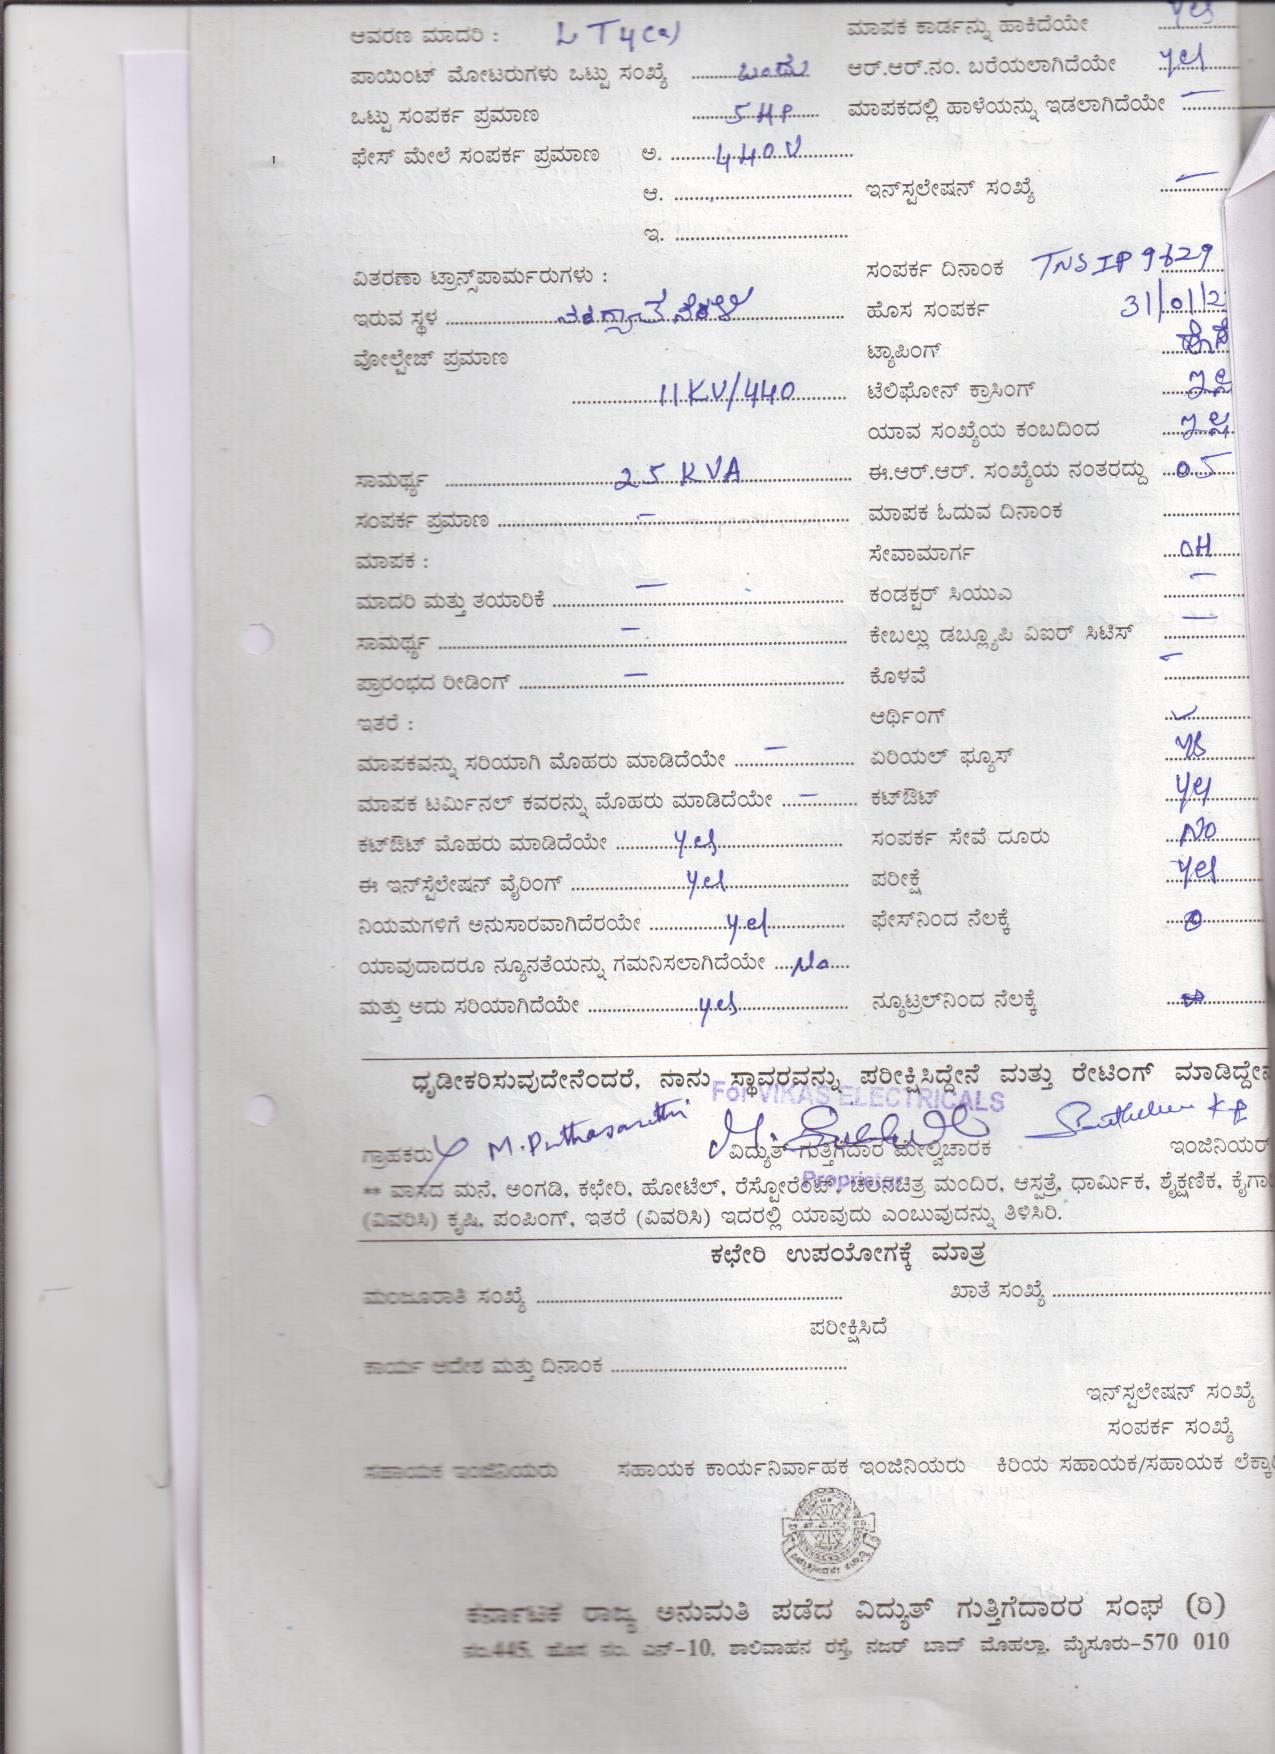 ಆವರಣ ಮಾದರಿ : LT4(a) ಮಾಪಕ ಕಾರ್ಡನ್ನು ಹಾಕಿದೆಯೇ yes
ಪಾಯಿಂಟ್ ಮೋಟರುಗಳು ಒಟ್ಟು ಸಂಖ್ಯೆ ಒಂದು ಆರ್.ಆರ್.ನಂ. ಬರೆಯಲಾಗಿದೆಯೇ yes
ಒಟ್ಟು ಸಂಪರ್ಕ ಪ್ರಮಾಣ 5 HP ಮಾಪಕದಲ್ಲಿ ಹಾಳೆಯನ್ನು ಇಡಲಾಗಿದೆಯೇ —
ಫೇಸ್ ಮೇಲೆ ಸಂಪರ್ಕ ಪ್ರಮಾಣ ಅ. 440V
ಆ. ಇನ್‌ಸ್ಟಲೇಷನ್ ಸಂಖ್ಯೆ —
ಇ.
ವಿತರಣಾ ಟ್ರಾನ್ಸ್‌ಪಾರ್ಮರುಗಳು : ಸಂಪರ್ಕ ದಿನಾಂಕ TNSIP9629
ಇರುವ ಸ್ಥಳ ಹೊಸ ಸಂಪರ್ಕ 31/01/2
ವೋಲ್ಟೇಜ್ ಪ್ರಮಾಣ ಟ್ಯಾಪಿಂಗ್
11KV/440 ಟೆಲಿಫೋನ್ ಕ್ರಾಸಿಂಗ್ ಇಲ್ಲ
ಯಾವ ಸಂಖ್ಯೆಯ ಕಂಬದಿಂದ ಇಲ್ಲ
ಸಾಮರ್ಥ್ಯ 25 KVA ಈ.ಆರ್.ಆರ್. ಸಂಖ್ಯೆಯ ನಂತರದ್ದು 05
ಸಂಪರ್ಕ ಪ್ರಮಾಣ — ಮಾಪಕ ಓದುವ ದಿನಾಂಕ
ಮಾಪಕ : ಸೇವಾಮಾರ್ಗ OH
ಮಾದರಿ ಮತ್ತು ತಯಾರಿಕೆ — ಕಂಡಕ್ಟರ್ ಸಿಯುಎ —
ಸಾಮರ್ಥ್ಯ — ಕೇಬಲ್ಲು ಡಬ್ಲ್ಯೂಪಿ ವಿಐರ್ ಸಿಟಿಸ್ —
ಪ್ರಾರಂಭದ ರೀಡಿಂಗ್ — ಕೊಳವೆ —
ಇತರೆ : ಆರ್ಥಿಂಗ್ ✓
ಮಾಪಕವನ್ನು ಸರಿಯಾಗಿ ಮೊಹರು ಮಾಡಿದೆಯೇ — ಏರಿಯಲ್ ಫ್ಯೂಸ್ yes
ಮಾಪಕ ಟರ್ಮಿನಲ್ ಕವರನ್ನು ಮೊಹರು ಮಾಡಿದೆಯೇ — ಕಟ್‌ಔಟ್ yes
ಕಟ್‌ಔಟ್ ಮೊಹರು ಮಾಡಿದೆಯೇ yes ಸಂಪರ್ಕ ಸೇವೆ ದೂರು No
ಈ ಇನ್‌ಸ್ಟೆಲೇಷನ್ ವೈರಿಂಗ್ yes ಪರೀಕ್ಷೆ yes
ನಿಯಮಗಳಿಗೆ ಅನುಸಾರವಾಗಿದೆರಯೇ yes ಫೇಸ್‌ನಿಂದ ನೆಲಕ್ಕೆ 0
ಯಾವುದಾದರೂ ನ್ಯೂನತೆಯನ್ನು ಗಮನಿಸಲಾಗಿದೆಯೇ No
ಮತ್ತು ಅದು ಸರಿಯಾಗಿದೆಯೇ yes ನ್ಯೂಟ್ರಲ್‌ನಿಂದ ನೆಲಕ್ಕೆ
ಧೃಡೀಕರಿಸುವುದೇನೆಂದರೆ, ನಾನು ಸ್ಥಾವರವನ್ನು ಪರೀಕ್ಷಿಸಿದ್ದೇನೆ ಮತ್ತು ರೇಟಿಂಗ್ ಮಾಡಿದ್ದೇನೆ
For VIKAS ELECTRICALS
ಗ್ರಾಹಕರು M. Parthasarathi ವಿದ್ಯುತ್ ಗುತ್ತಿಗೆದಾರ ಮೇಲ್ವಿಚಾರಕ ಇಂಜಿನಿಯರ್
Proprietor
** ವಾಸದ ಮನೆ, ಅಂಗಡಿ, ಕಛೇರಿ, ಹೋಟೆಲ್, ರೆಸ್ಟೋರೆಂಟ್, ಚಲನಚಿತ್ರ ಮಂದಿರ, ಆಸ್ಪತ್ರೆ, ಧಾರ್ಮಿಕ, ಶೈಕ್ಷಣಿಕ, ಕೈಗಾ
(ವಿವರಿಸಿ) ಕೃಷಿ, ಪಂಪಿಂಗ್, ಇತರೆ (ವಿವರಿಸಿ) ಇದರಲ್ಲಿ ಯಾವುದು ಎಂಬುವುದನ್ನು ತಿಳಿಸಿರಿ.
ಕಛೇರಿ ಉಪಯೋಗಕ್ಕೆ ಮಾತ್ರ
ಮಂಜೂರಾತಿ ಸಂಖ್ಯೆ ಖಾತೆ ಸಂಖ್ಯೆ
ಪರೀಕ್ಷಿಸಿದೆ
ಕಾರ್ಯ ಆದೇಶ ಮತ್ತು ದಿನಾಂಕ
ಇನ್‌ಸ್ಟಲೇಷನ್ ಸಂಖ್ಯೆ
ಸಂಪರ್ಕ ಸಂಖ್ಯೆ
ಸಹಾಯಕ ಇಂಜಿನಿಯರು ಸಹಾಯಕ ಕಾರ್ಯನಿರ್ವಾಹಕ ಇಂಜಿನಿಯರು ಕಿರಿಯ ಸಹಾಯಕ/ಸಹಾಯಕ ಲೆಕ್ಕಾ
ಕರ್ನಾಟಕ ರಾಜ್ಯ ಅನುಮತಿ ಪಡೆದ ವಿದ್ಯುತ್ ಗುತ್ತಿಗೆದಾರರ ಸಂಘ (ರಿ)
ನಂ.445, ಹೊಸ ನಂ. ಎನ್-10, ಶಾಲಿವಾಹನ ರಸ್ತೆ, ನಜರ್ ಬಾದ್ ಮೊಹಲ್ಲಾ, ಮೈಸೂರು-570 010